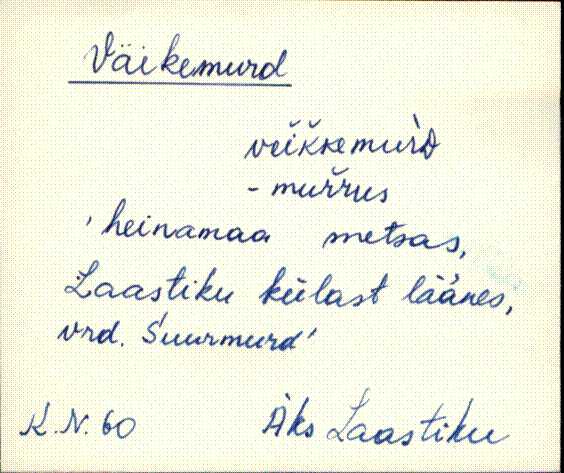 Väikemurd
veĭk̆kemur̀D
- mur̆r̆us
'heinamaa metsas,
Laastiku külast läänes,
vrd. Suurmurd'
K.N. 60 Äks Laastiku